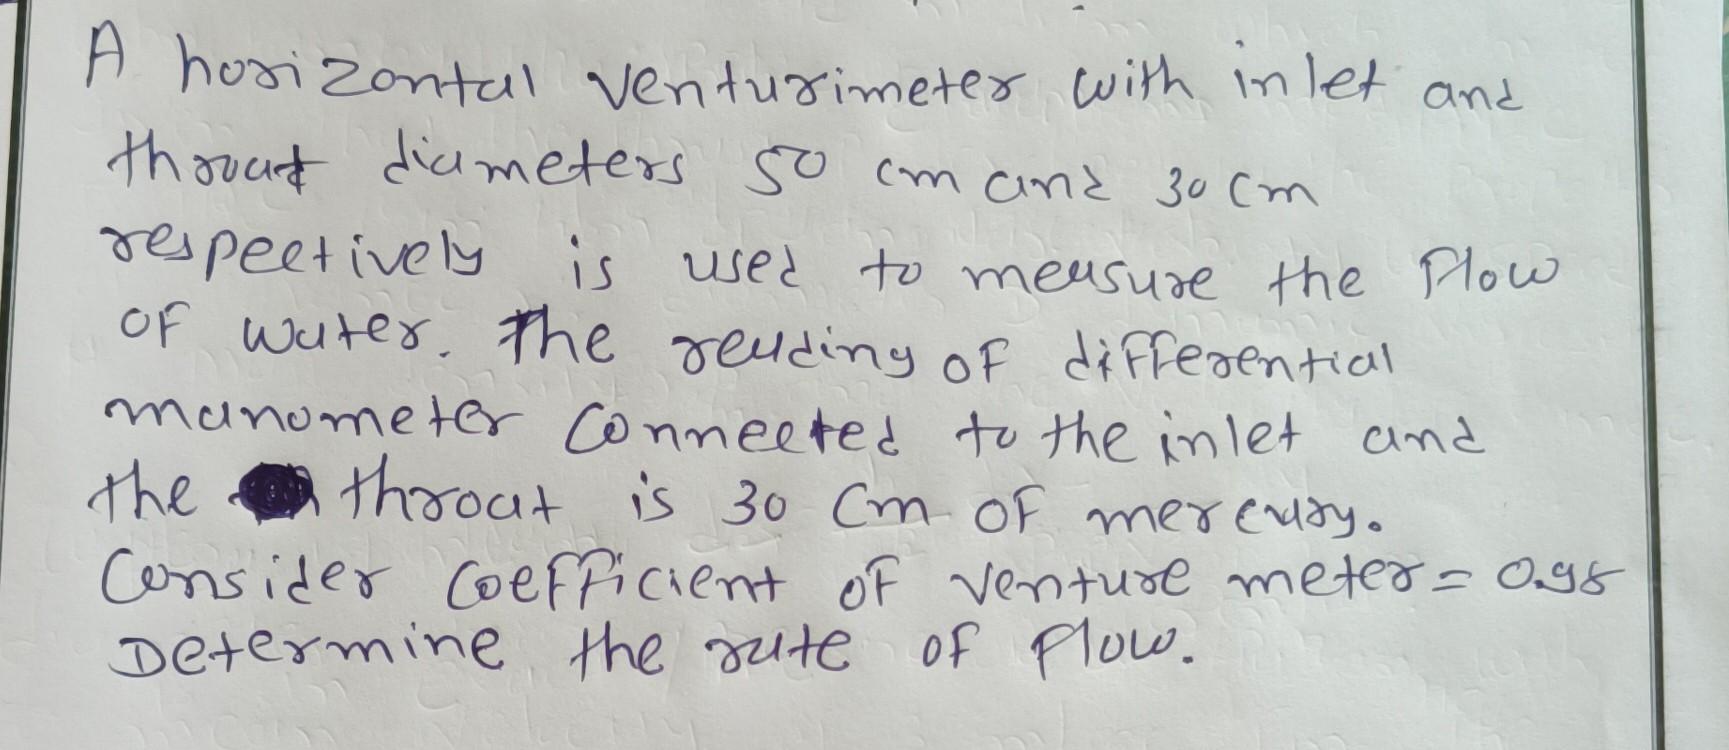 A horizontal venturimeter with inlet and
throat diameters 50 cm and 30 cm
respectively is used to measure the flow
of water. The reading of differential
manometer connected to the inlet and
the throat is 30 cm of mercury.
Consider coefficient of venture meter = 0.98
Determine the rate of flow.